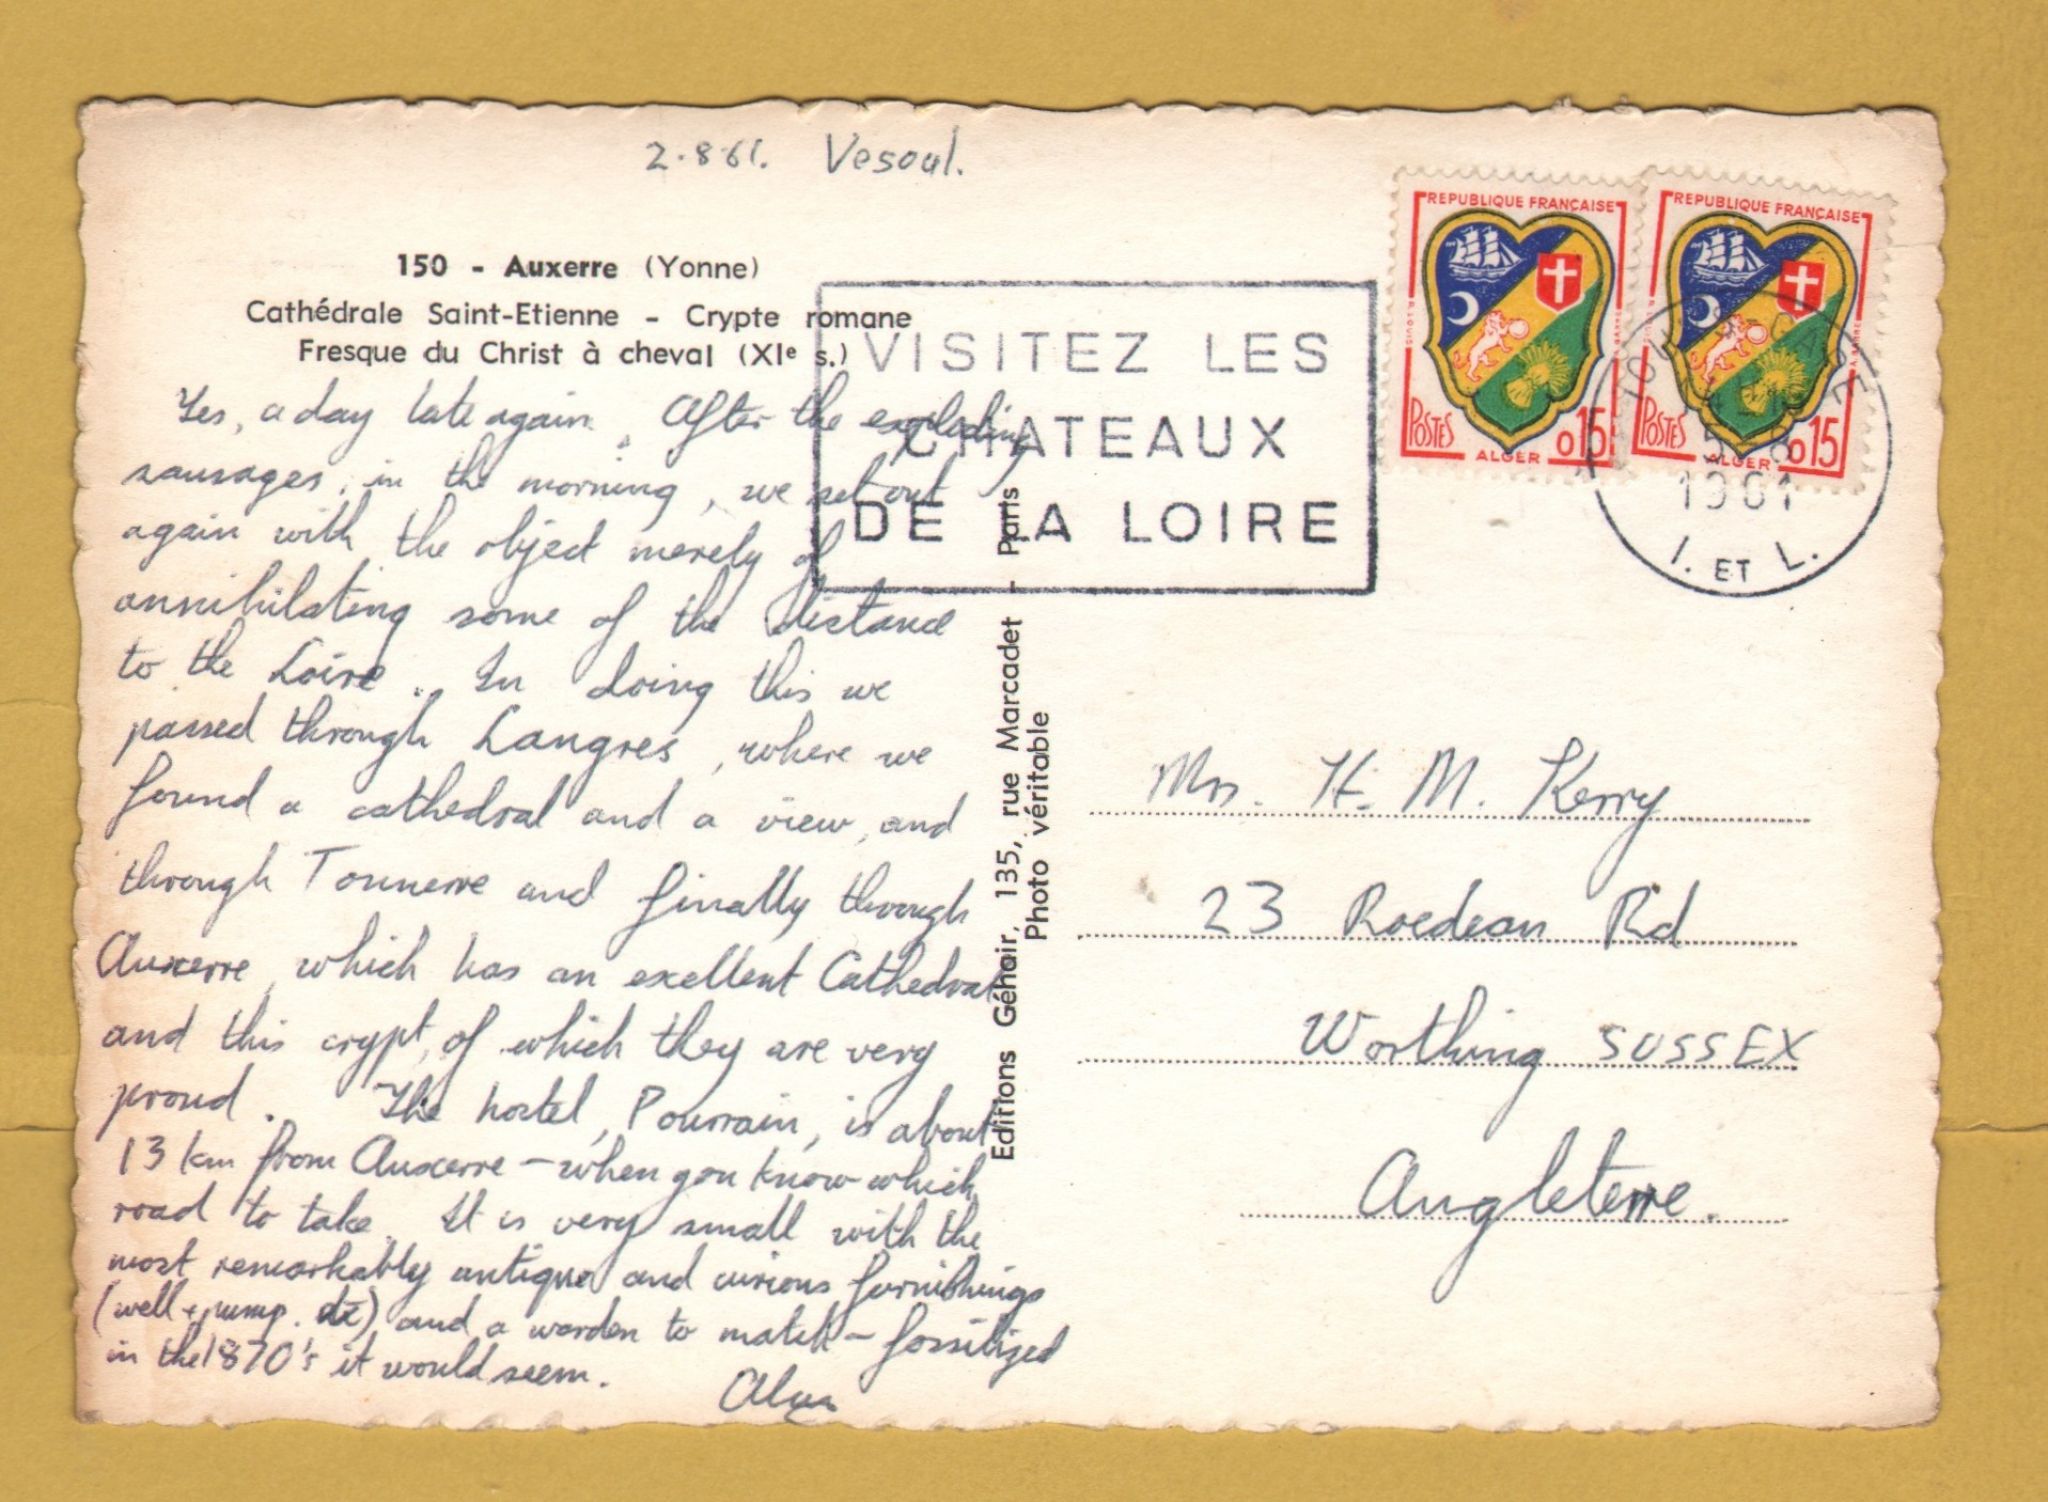 2.8.61. Vesoul.
150 - Auxerre (Yonne)
Cathédrale Saint-Etienne - Crypte romane
Fresque du Christ à cheval (XIe s.)
Yes, a day late again. After the exploding
sausages, in the morning, we set out
again with the object merely of
annihilating some of the distance
to the Loire. In doing this we
passed through Langres, where we
found a cathedral and a view, and
through Tonnerre and finally through
Auxerre, which has an exellent Cathedral
and this crypt, of which they are very
proud. The hostel, Pourrain, is about
13 km from Auxerre - when you know which
road to take. It is very small with the
most remarkably antique and curious furnishings
(well + pump. etc) and a warden to match - fossilized
in the 1870's it would seem.
Alan
Editions Géhair, 135, rue Marcadet - Paris
Photo véritable
VISITEZ LES
CHATEAUX
DE LA LOIRE
REPUBLIQUE FRANÇAISE
POSTES
ALGER
0.15
REPUBLIQUE FRANÇAISE
POSTES
ALGER
0.15
TOURS GARE
1961
I. ET L.
Mrs. H. M. Kerry
23 Roedean Rd
Worthing SUSSEX
Angleterre.